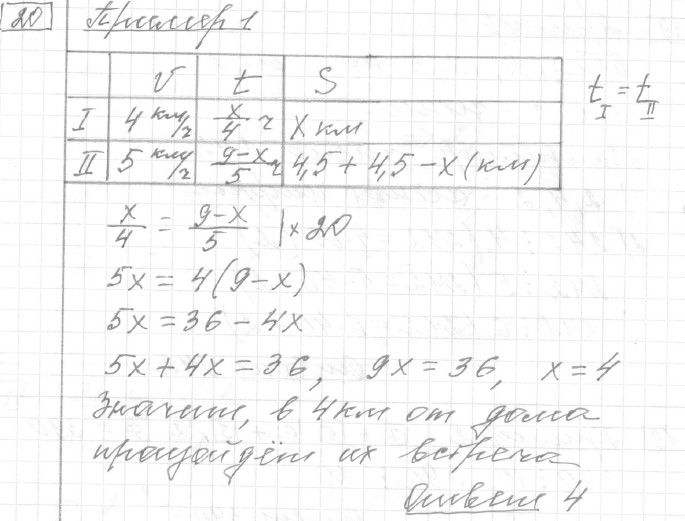 20 Пример 1
v t S
I 4 км/ч x/4 ч x км
II 5 км/ч 9-x/5 ч 4,5 + 4,5 - x (км)
t I = t II
x/4 = 9-x/5 | × 20
5x = 4(9-x)
5x = 36 - 4x
5x + 4x = 36, 9x = 36, x = 4
Значит, в 4 км от дома
произойдёт их встреча
Ответ 4